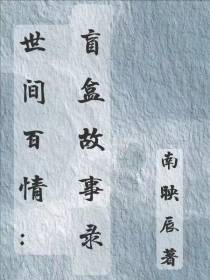 世间百情：
盲盒故事录
南映辰著